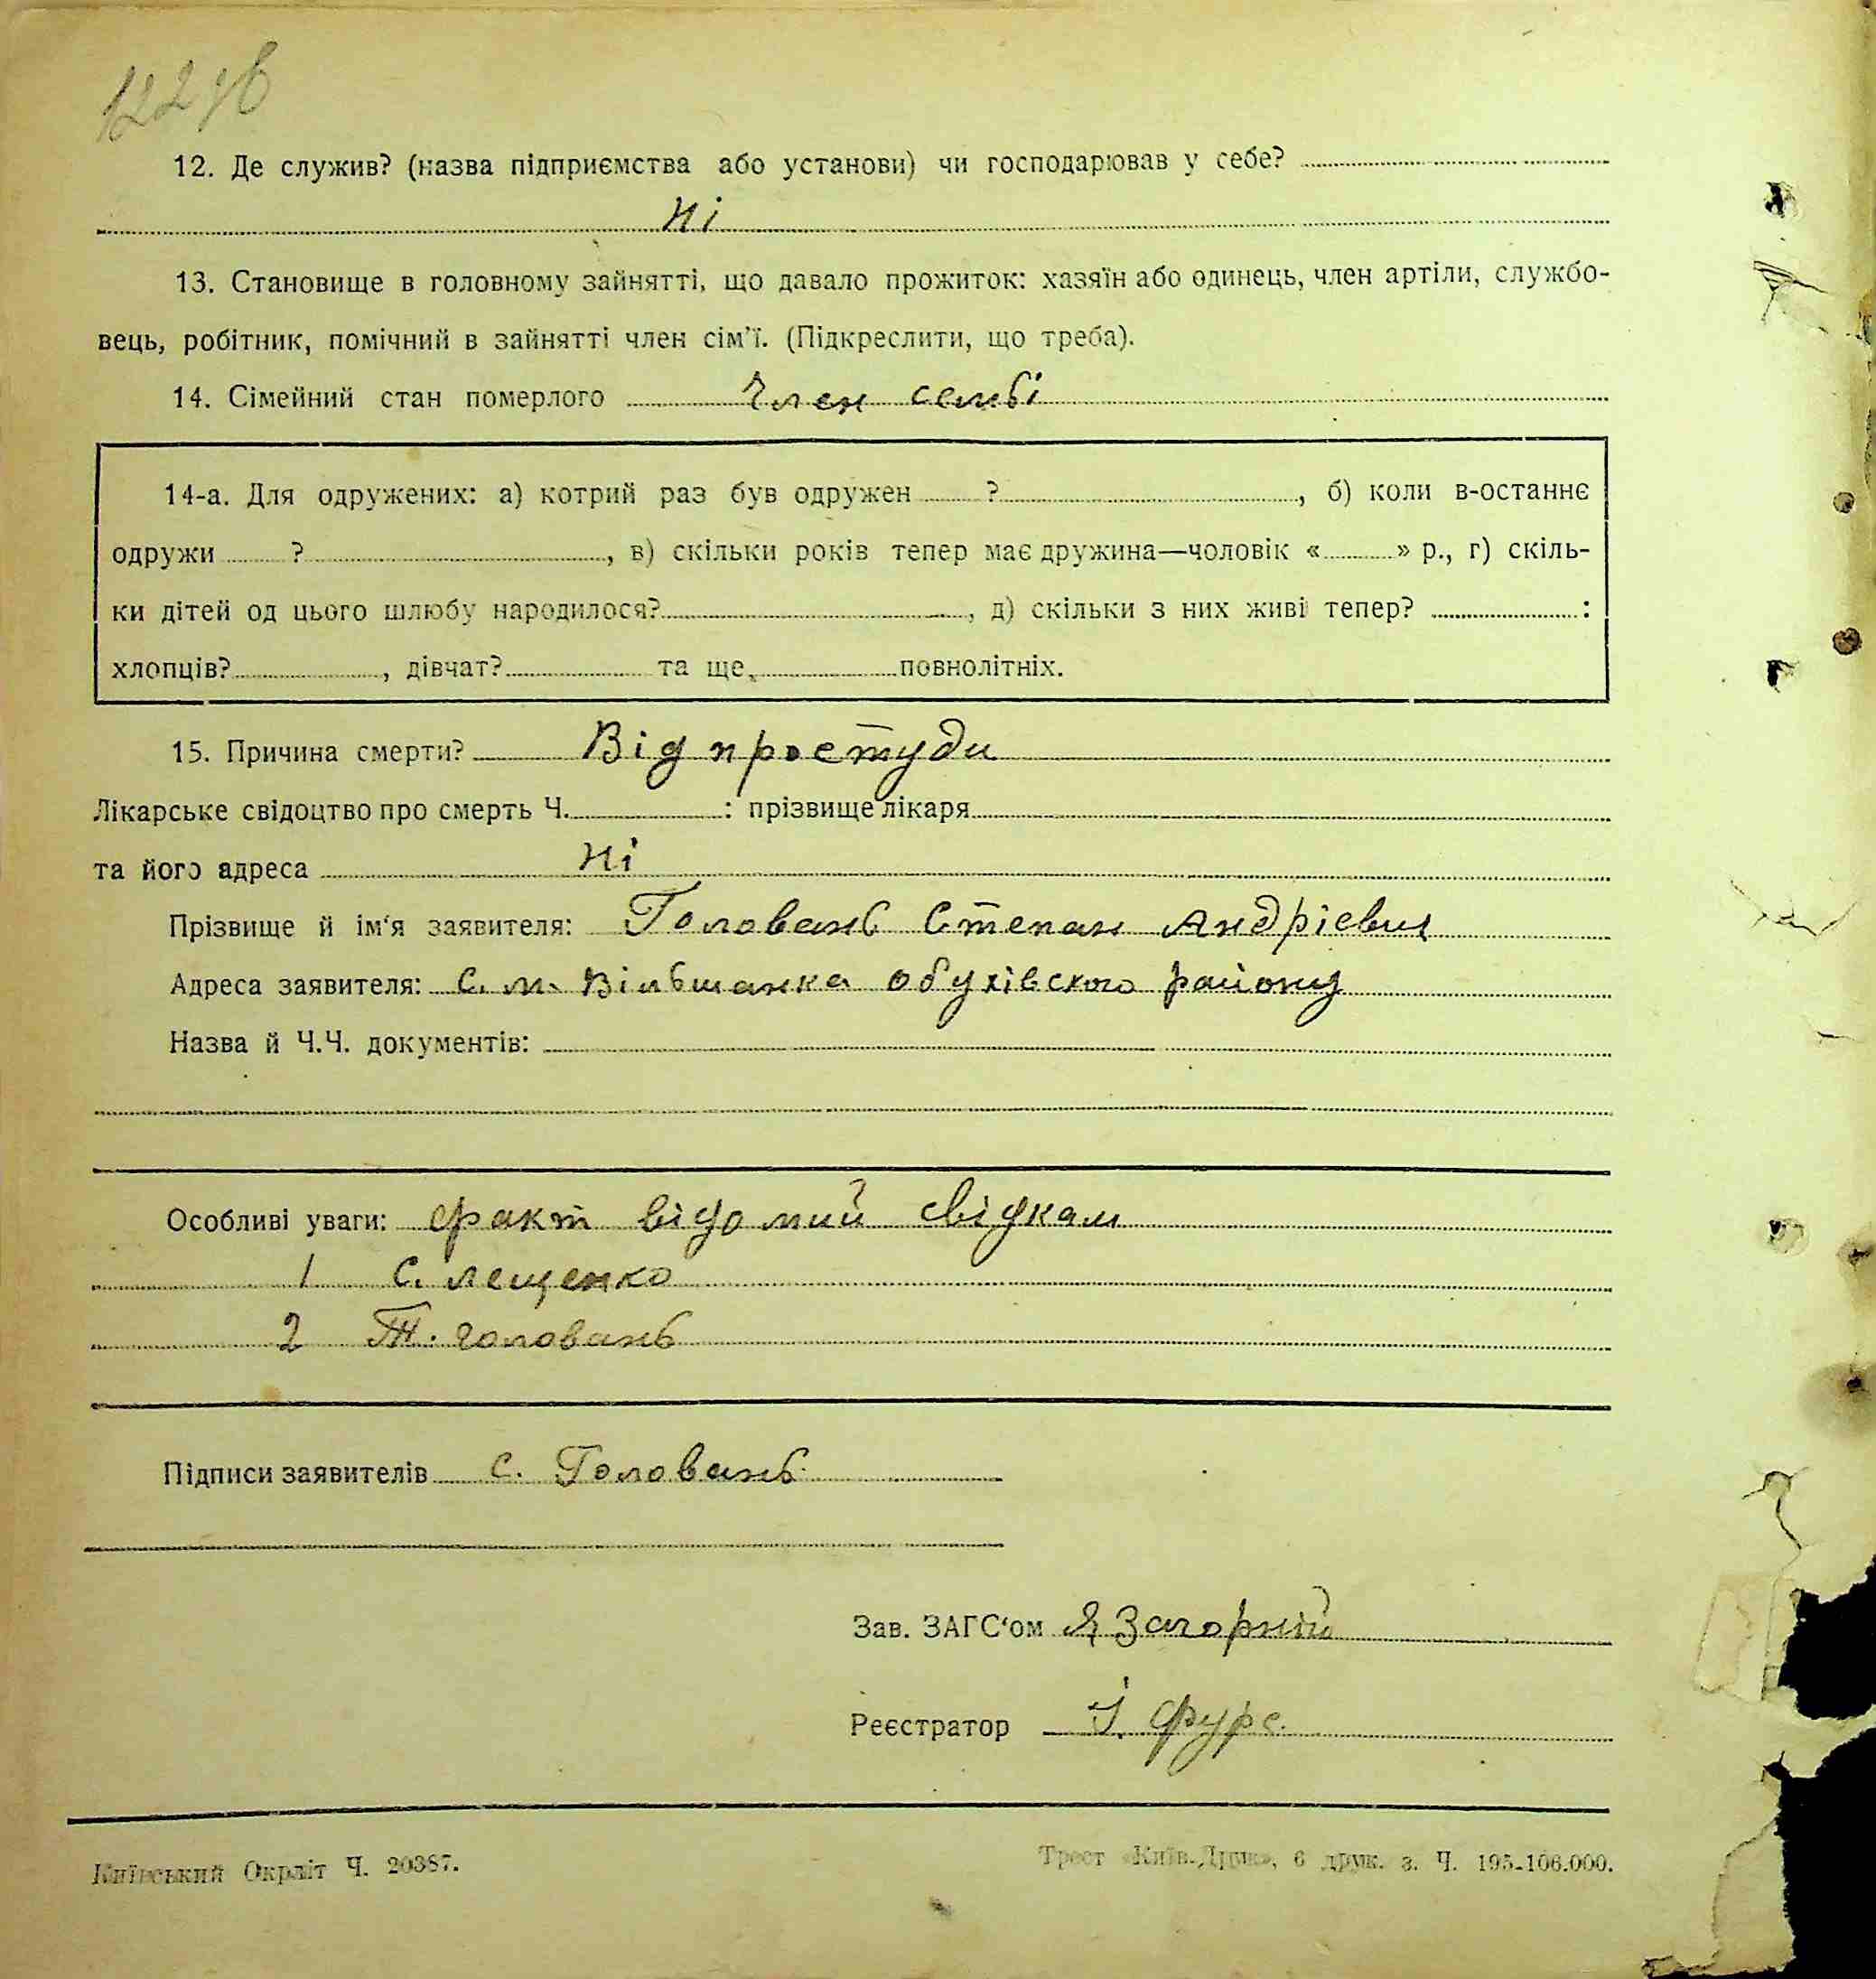 122 зв
12. Де служив? (назва підприємства або установи) чи господарював у себе?
Ні
13. Становище в головному зайнятті, що давало прожиток: хазяїн або одинець, член артіли, службо-
вець, робітник, помічний в зайнятті член сім'ї. (Підкреслити, що треба).
14. Сімейний стан померлого Член семьі
14-а. Для одружених: а) котрий раз був одружен ?, б) коли в-останнє
одружи ?, в) скільки років тепер має дружина—чоловік «» р., г) скіль-
ки дітей од цього шлюбу народилося?, д) скільки з них живі тепер? :
хлопців?, дівчат? та ще, повнолітніх.
15. Причина смерти? Від простуди
Лікарське свідоцтво про смерть Ч. : прізвище лікаря
та його адреса Ні
Прізвище й ім'я заявителя: Головань Степан Андрієвич
Адреса заявителя: С. М. Вільшанка Обухівского району
Назва й Ч.Ч. документів:
Особливі уваги: факт відомий свідкам
1 С. Лещенко
2 Т. Головань
Підписи заявителів С. Головань
Зав. ЗАГС'ом Я Загорний
Реєстратор І. Фурс
Київський Окрліт Ч. 20387.
Трест «Київ-Друк», 6 друк. з. Ч. 195-106.000.